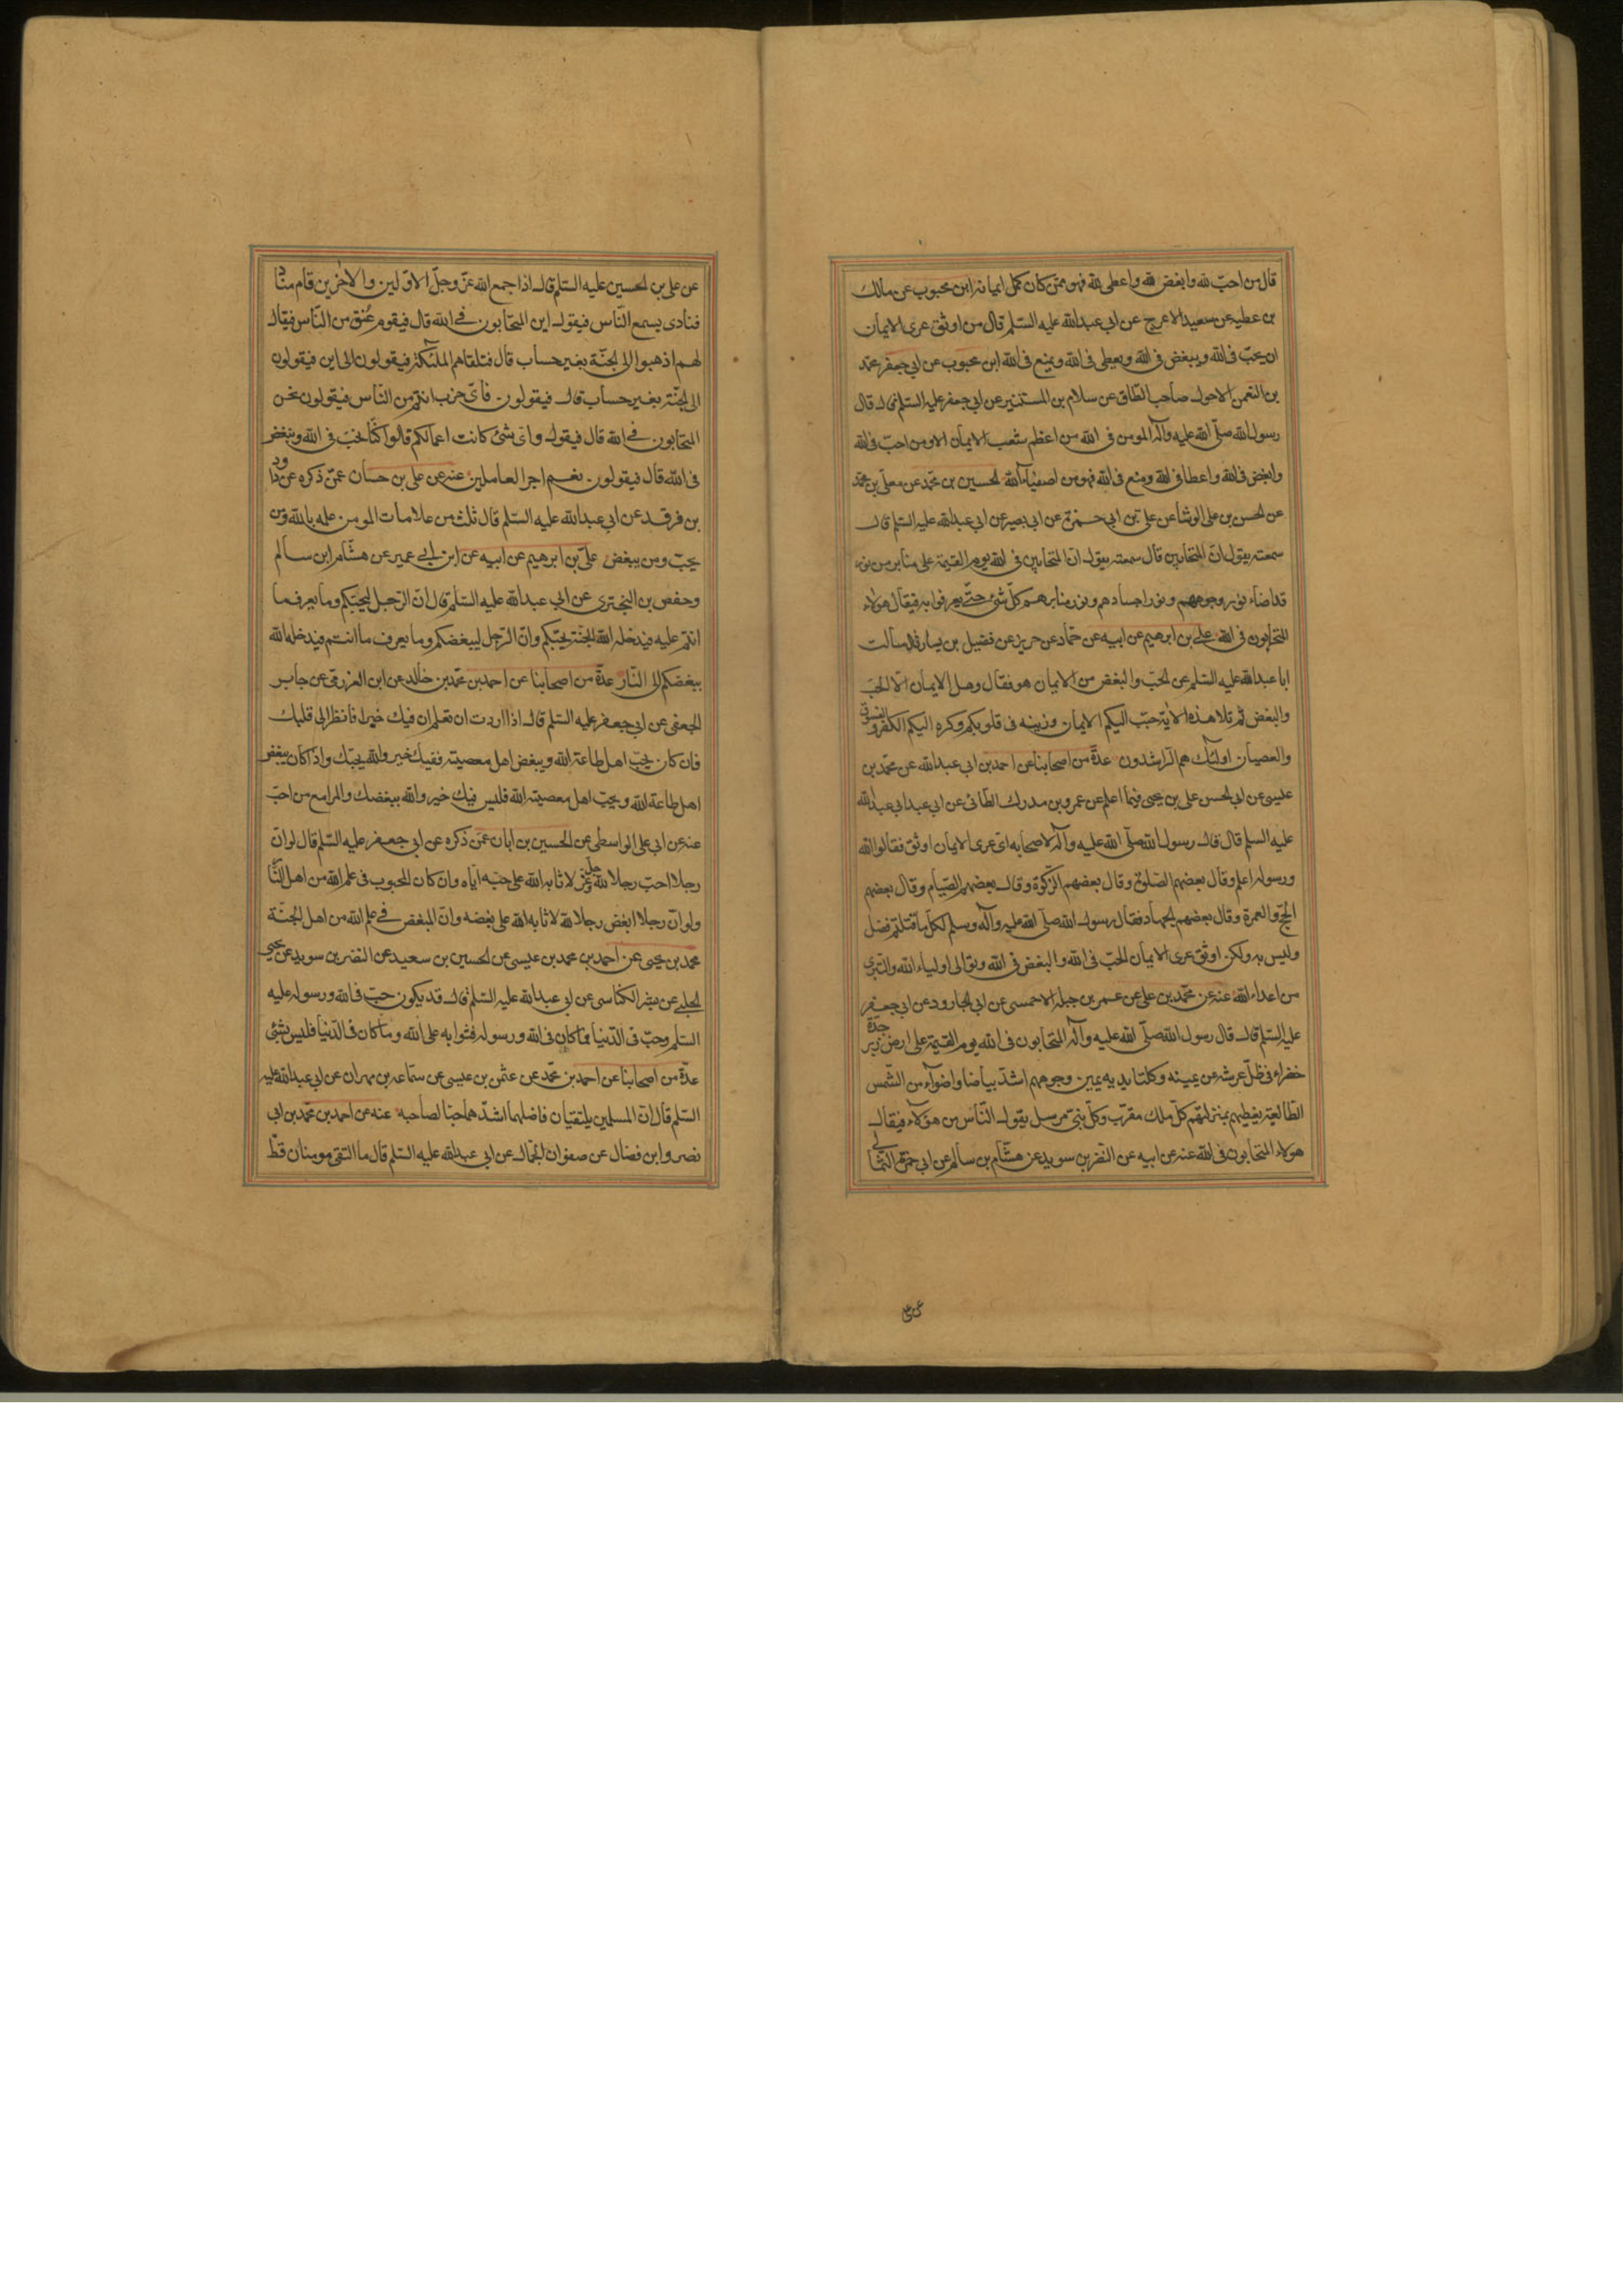 قال من احبّ لله وابغض لله واعطى لله فهو ممّن كان كمل ايمانه ابن محبوب عن مالك
بن عطيه عن سعيد الاعرج عن ابى عبدالله عليه السّلم قال من اوثق عرى الايمان
ان يحبّ فى الله ويبغض فى الله ويعطى فى الله ويمنع فى الله ابن محبوب عن ابى جعفر محمّد
بن النعمن الاحول صاحب الطّاق عن سلام بن المستنير عن ابى جعفر عليه السّلم قال قال
رسول الله صلّى الله عليه وآله المومن فى الله من اعظم شعب الايمان الا ومن احبّ فى الله
وابغض فى الله واعطا فى الله ومنع فى الله فهو من اصفياء الله الحسين بن محمّد عن معلّى بن محمّد
عن الحسن بن على الوشا عن علىّ بن ابى حمزة عن ابى بصير عن ابى عبدالله عليه السّلم قال
سمعته يقول انّ المتحابين قال سمعته يقول انّ المتحابين فى الله يوم القيمة على منابر من نور
قد اضاء نور وجوههم ونور اجسادهم ونور منابرهم كلّ شئ حتّى يعرفوا به فيقال هولاء
المتحابون فى الله على بن ابرهيم عن ابيه عن حمّاد عن حريز عن فضيل بن يسار قال سألت
ابا عبدالله عليه السّلم عن الحبّ والبغض من الايمان هو فقال وهل الايمان الّا الحبّ
والبغض ثمّ تلا هذه الاية حبّب اليكم الايمان وزينه فى قلوبكم وكره اليكم الكفر والفسوق
والعصيان اولئك هم الرّاشدون عدّة من اصحابنا عن احمد بن ابى عبدالله عن محمّد بن
عليسى عن ابى الحسن على بن يحيى فيما اعلم عن عمرو بن مدرك الطّائى عن ابى عبد ابى عبدالله
عليه السلم قال قال رسول الله صلّى الله عليه وآله لاصحابه اىّ عرى الايمان اوثق فقالوا الله
ورسوله اعلم وقال بعضهم الصّلوة وقال بعضهم الزّكوة وقال بعضهم الصّيام وقال بعضهم
الحجّ والعمرة وقال بعضهم الجهاد فقال رسول الله صلّى الله عليه وآله وسلم لكلّ ما قلتم فضل
وليس به ولكن اوثق عرى الايمان الحبّ فى الله والبغض فى الله وتوالى اولياء الله والتبرى
من اعداء الله عنه عن محمّد بن على عن عمر بن جبله الاحمسى عن ابى الجارود عن ابى جعفر
عليه السّلم قال قال رسول الله صلّى الله عليه وآله المتحابون فى الله يوم القيمة على ارض زبرجدة
خضراء فى ظلّ عرشه عن يمينه وكلتا يديه يمين وجوههم اشدّ بياضا واضوآء من الشّمس
الطّالعة يغبطهم بمنزلتهم كلّ ملك مقرّب وكلّ نبىّ مرسل يقول النّاس من هؤلاء فيقال
هولاء المتحابون فى الله عنه عن ابيه عن النّضر بن سويد عن هشام بن سالم عن ابى حمزة الثّمالى
عن على
عن على بن الحسين عليه السّلم قال اذا جمع الله عزّ وجلّ الاوّلين والاخرين قام مناد
فنادى يسمع النّاس فيقول اين المتحابون فى الله قال فيقوم عنق من النّاس فيقال
لهم اذهبوا الى الجنّة بغير حساب قال فتلقاهم الملئكة فيقولون الى اين فيقولون
الى الجنّة بغير حساب قال فيقولون فأىّ حزب انتم من النّاس فيقولون نحن
المتحابون فى الله قال فيقول واى شئ كانت اعمالكم قالوا كنّا نحبّ فى الله ونبغض
فى الله قال فيقولون نعم اجر العاملين عنه عن على بن حسان عمّن ذكره عن داود
بن فرقد عن ابى عبدالله عليه السّلم قال ثلث من علامات المومن علمه بالله ومن
يحبّ ومن يبغض علىّ بن ابرهيم عن ابيه عن ابن ابى عمير عن هشام ابن سالم
وحفص بن البخترى عن ابى عبدالله عليه السّلم قال انّ الرّجل ليحبّكم وما يعرف ما
انتم عليه فيدخله الله الجنّة بحبّكم وانّ الرّجل ليبغضكم وما يعرف ما انتم فيدخله الله
ببغضكم الى النّار عدّة من اصحابنا عن احمد بن محمّد بن خالد عن ابن العزرمى عن جابر
الجعفى عن ابى جعفر عليه السّلم قال اذا اردت ان تعلم ان فيك خيرا فانظر الى قلبك
فان كان يحبّ اهل طاعة الله ويبغض اهل معصيته ففيك خير والله يحبّك واذا كان يبغض
اهل طاعة الله ويحبّ اهل معصيته الله فليس فيك خير والله يبغضك والمرا مع من احبّ
عنه عن ابى على الواسطى عن الحسين بن ابان عمّن ذكره عن ابى جعفر عليه السّلم قال لوانّ
رجلا احبّ رجلا لله عزّ وجلّ لاثابه الله على حبّه ايّاه وان كان المحبوب فى علم الله من اهل النّار
ولو انّ رجلا ابغض رجلا لله لاثابه الله على بغضه وانّ المبغض فى علم الله من اهل الجنّة
محمد بن يحيى عن احمد بن محمد بن عيسى عن الحسين بن سعيد عن النضر بن سويد عن يحيى
الحلبى عن بشر الكناسى عن ابى عبدالله عليه السّلم قال قد يكون حبّ فى الله ورسوله عليه
السّلم وحبّ فى الدّنيا فما كان فى الله ورسوله فثوابه على الله وما كان فى الدّنيا فليس بشئ
عدّة من اصحابنا عن احمد بن محمّد عن عثمن بن عيسى عن سماعه بن مهران عن ابى عبدالله عليه
السّلم قال انّ المسلمين يلتقيان فافضلهما اشدّهما حبّا لصاحبه عنه عن احمد بن محمّد بن ابى
نصر وابن فضال عن صفوان الجمال عن ابى عبدالله عليه السّلم قال ما التقى مومنان قطّ